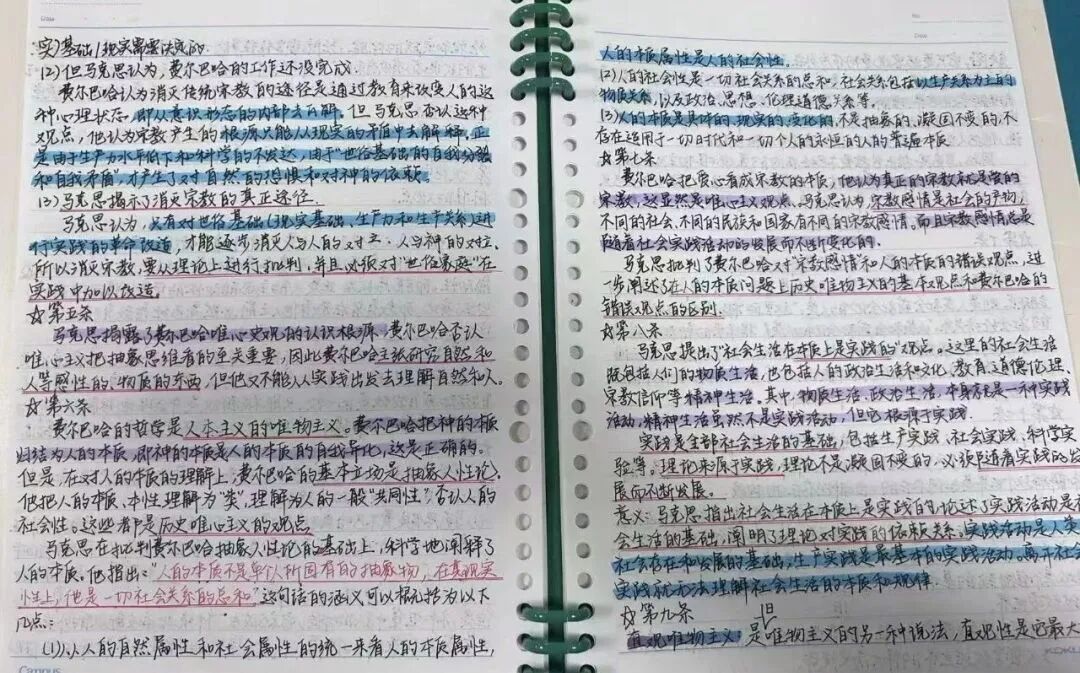 实)基础(现实需要决定的
(2)但马克思认为,费尔巴哈的工作还没完成
费尔巴哈认为消灭传统宗教的途径是通过教育来改变人的这
种心理状态,即从意识形态的内部去瓦解。但马克思否认这种
观点,他认为宗教产生的根源只能从现实的矛盾中去解释。正
是由于生产力水平低下和科学的不发达,由于"世俗基础"的自我分裂
和自我矛盾"才产生了对自然的恐惧和对神的依赖。
(3)马克思揭示了消灭宗教的真正途径.
马克思认为,只有对世俗基础(现实基础,生产力和生产关系)进
行实践的革命改造,才能逐步消灭人与人的对立、人与神的对立.
所以消灭宗教,要从理论上进行批判,并且必须对"世俗家庭"在
实践中加以改造。
☆第五条
马克思揭露了费尔巴哈唯心史观的认识根源,费尔巴哈否认
唯心主义把抽象思维看的至关重要,因此费尔巴哈主张研究自然和
人等感性的、物质的东西,但他又不能从实践出发去理解自然和人。
☆第六条
费尔巴哈的哲学是人本主义的唯物主义。费尔巴哈把神的本质
归结为人的本质,即神的本质是人的本质的自我异化,这是正确的。
但是,在对人的本质的理解上,费尔巴哈的基本立场是抽象人性论,
他把人的本质、本性理解为"类",理解为人的一般"共同性",否认人的
社会性。这些都是历史唯心主义的观点
马克思在批判费尔巴哈抽象人性论的基础上,科学地阐释了
人的本质。他指出:"人的本质不是单个人所固有的抽象物,在其现实
性上,他是一切社会关系的总和"这句话的涵义可以概括为以下
几点:
(1)从人的自然属性和社会属性的统一来看人的本质属性,
人的本质属性是人的社会性。
(2)人的社会性是一切社会关系的总和,社会关系包括以生产关系为主的
物质关系,以及政治、思想、伦理道德关系等。
(3)人的本质是具体的、现实的、变化的,不是抽象的、凝固不变的,不
存在适用于一切时代和一切个人的永恒的人的普遍本质
☆第七条
费尔巴哈把爱心看成宗教的本质,他认为真正的宗教就是爱的
宗教,这显然是唯心主义观点。马克思认为,宗教感情是社会的产物,
不同的社会、不同的民族和国家有不同的宗教感情,而且宗教感情总是
随着社会实践活动的发展而不断变化的.
马克思批判了费尔巴哈对"宗教感情"和人的本质的错误观点,进
一步阐述了在人的本质问题上历史唯物主义的基本观点和费尔巴哈的
错误观点的区别.
☆第八条
马克思提出了"社会生活在本质上是实践的"观点。这里的社会生活
既包括人们的物质生活,也包括人的政治生活和文化、教育、道德伦理、
宗教信仰等精神生活。其中,物质生活、政治生活,本身就是一种实践
活动,精神生活虽然不是实践活动,但它根源于实践.
实践是全部社会生活的基础,包括生产实践、社会实践、科学实
验等。理论来源于实践,理论不是凝固不变的,必须随着实践的发
展而不断发展。
意义:马克思指出社会生活在本质上是实践的,论述了实践活动是社
会生活的基础,阐明了理论对实践的依赖关系。实践活动是人类
社会存在和发展的基础,生产实践是最基本的实践活动,离开社会
实践就无法理解社会生活的本质和规律.
☆第九条
旧
直观唯物主义,是唯物主义的另一种说法,直观性是它最大
Campus